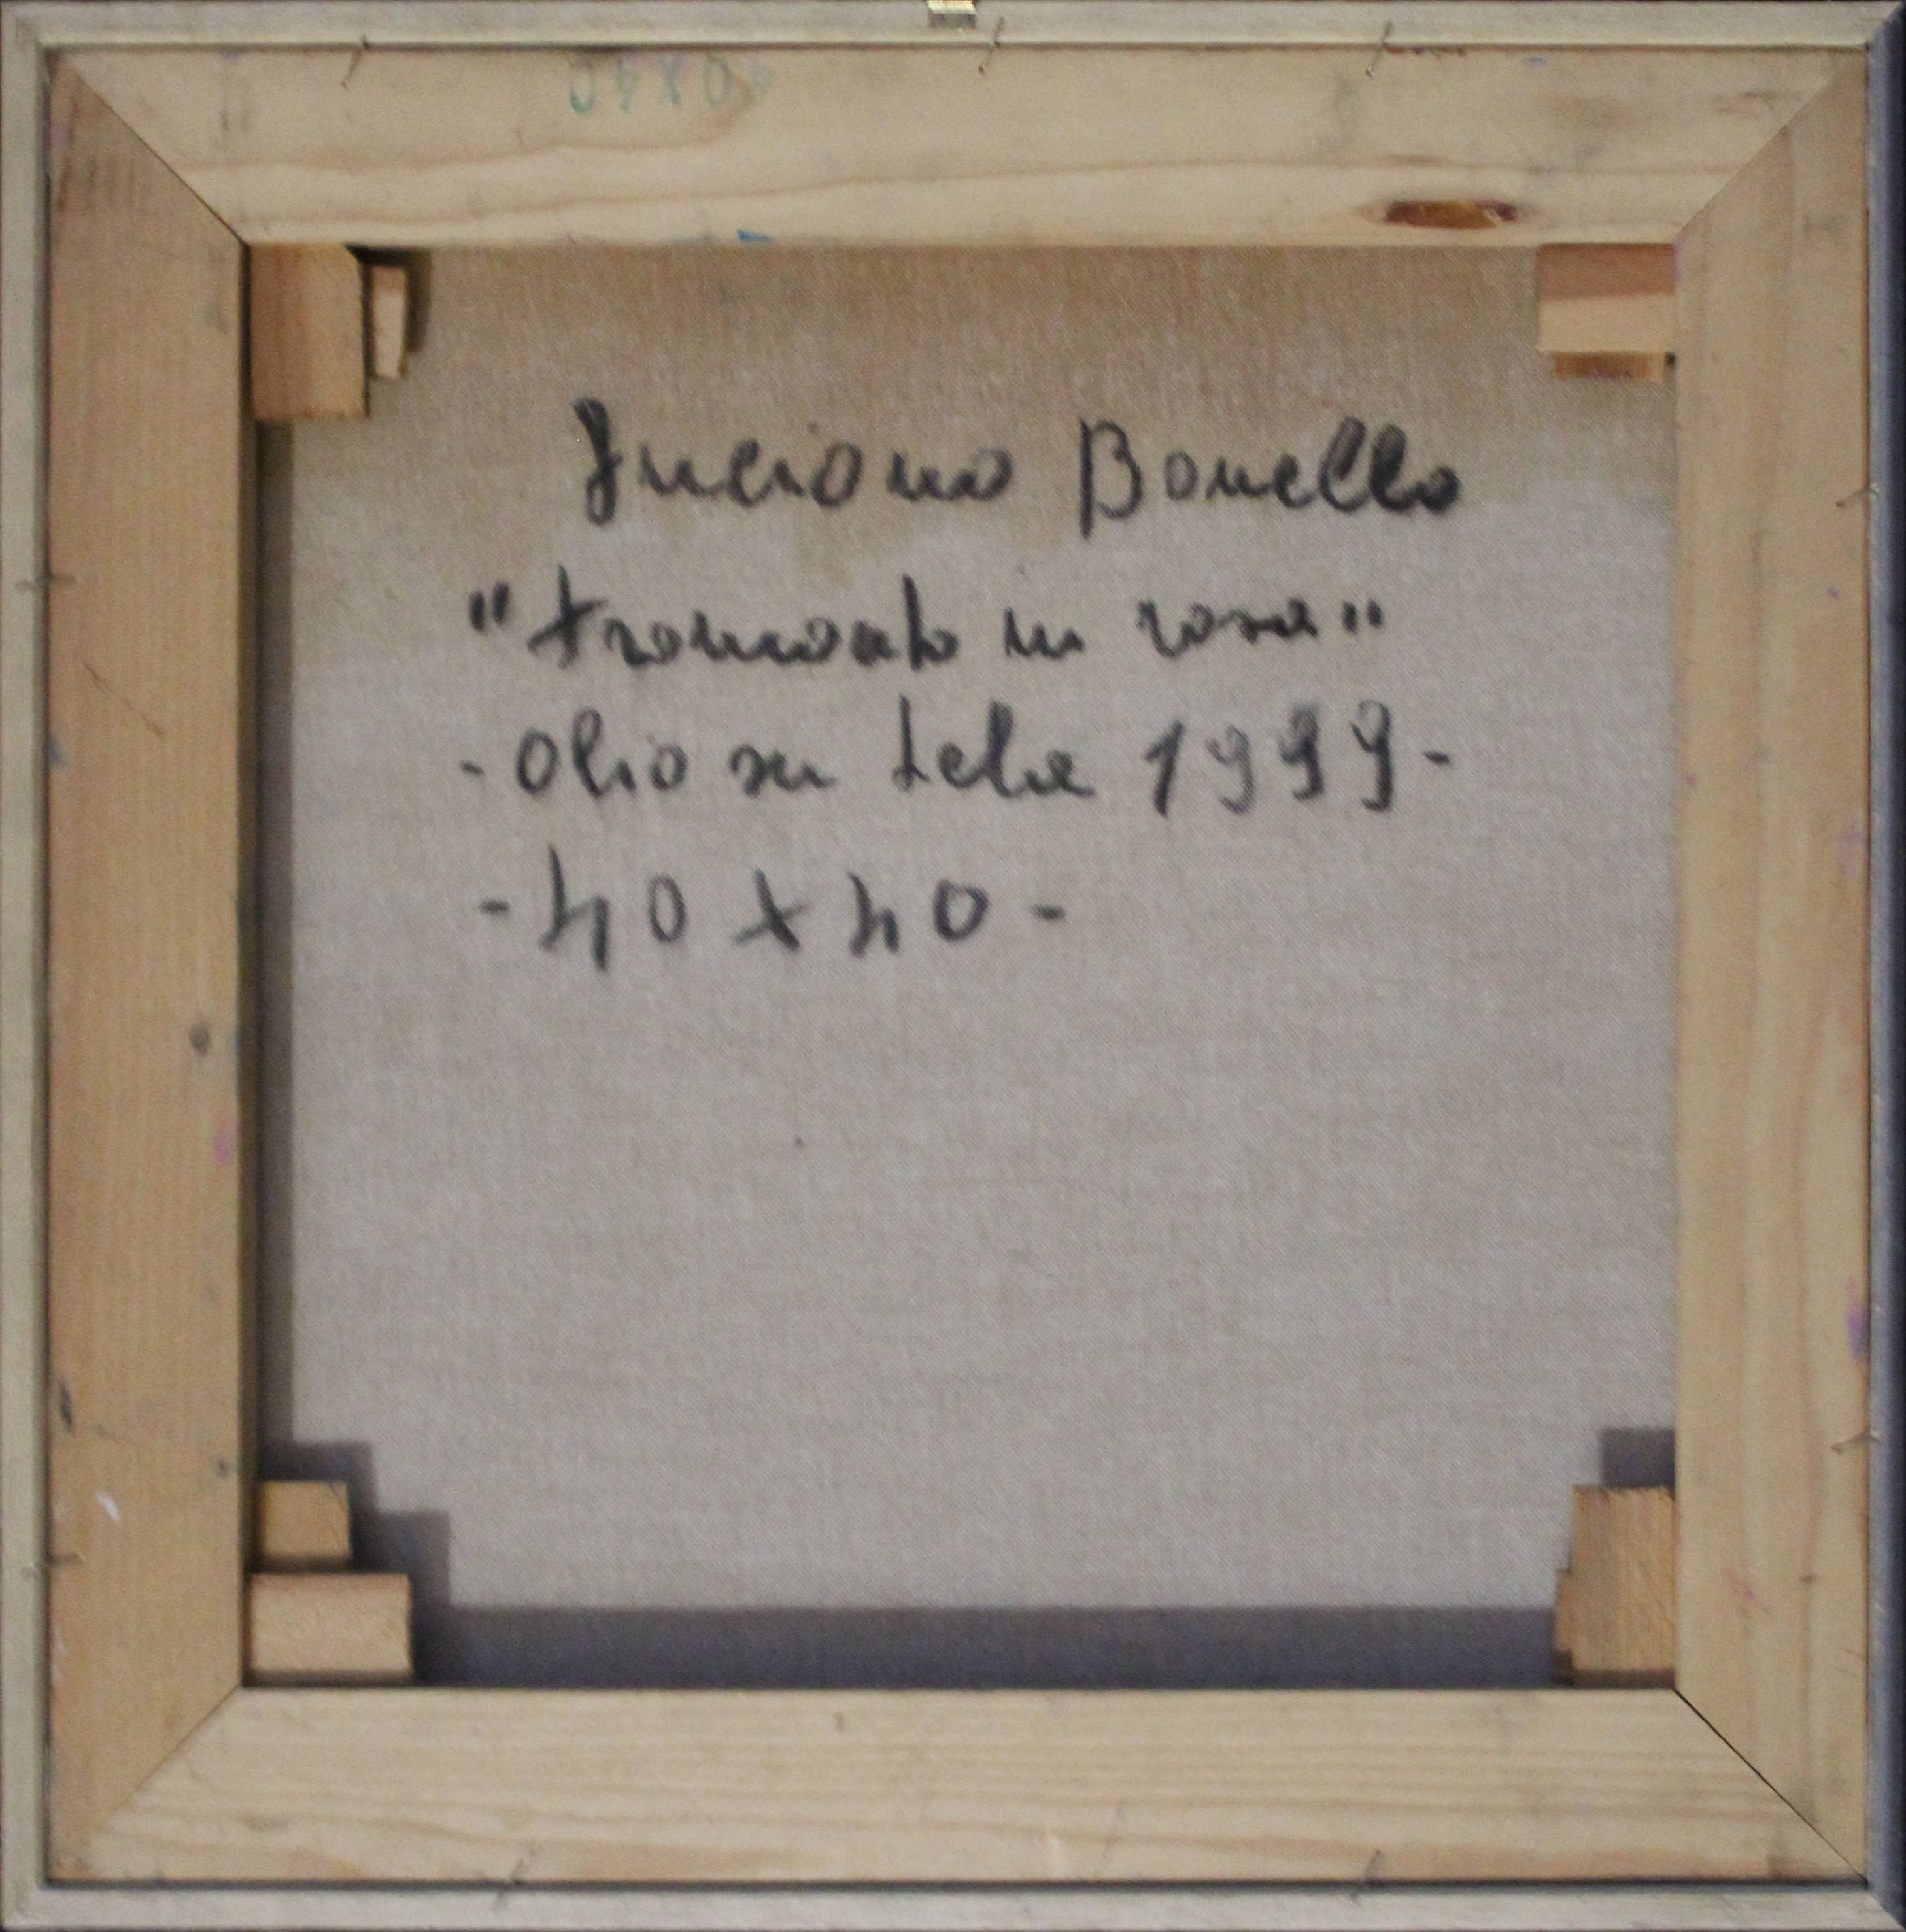 40x40
Luciano Bonello
"tramonto in rosa"
-olio su tela 1999-
-40x40-